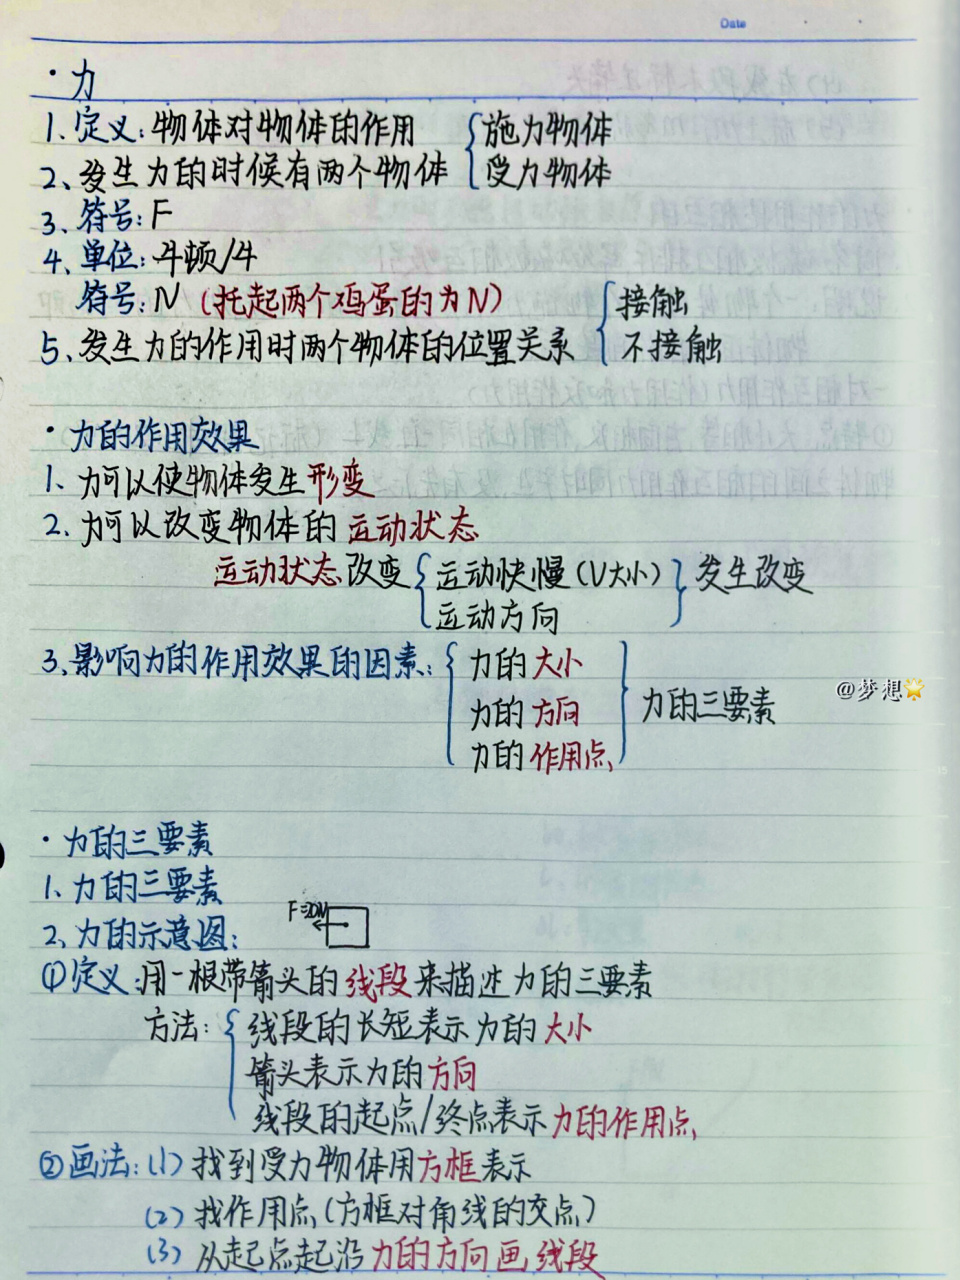 Date
· 力
1、定义：物体对物体的作用 { 施力物体
2、发生力的时候有两个物体 受力物体
3、符号：F
4、单位：牛顿/牛
符号：N (托起两个鸡蛋的为N) { 接触
5、发生力的作用时两个物体的位置关系 不接触
· 力的作用效果
1、力可以使物体发生形变
2、力可以改变物体的运动状态
运动状态改变 { 运动快慢(V大小) } 发生改变
运动方向
3、影响力的作用效果的因素： { 力的大小
力的方向 } 力的三要素
力的作用点
@梦想🌟
· 力的三要素
1、力的三要素
F=20N
2、力的示意图：
①定义：用一根带箭头的线段来描述力的三要素
方法： { 线段的长短表示力的大小
箭头表示力的方向
线段的起点/终点表示力的作用点
②画法：(1) 找到受力物体用方框表示
(2) 找作用点(方框对角线的交点)
(3) 从起点起沿力的方向画线段